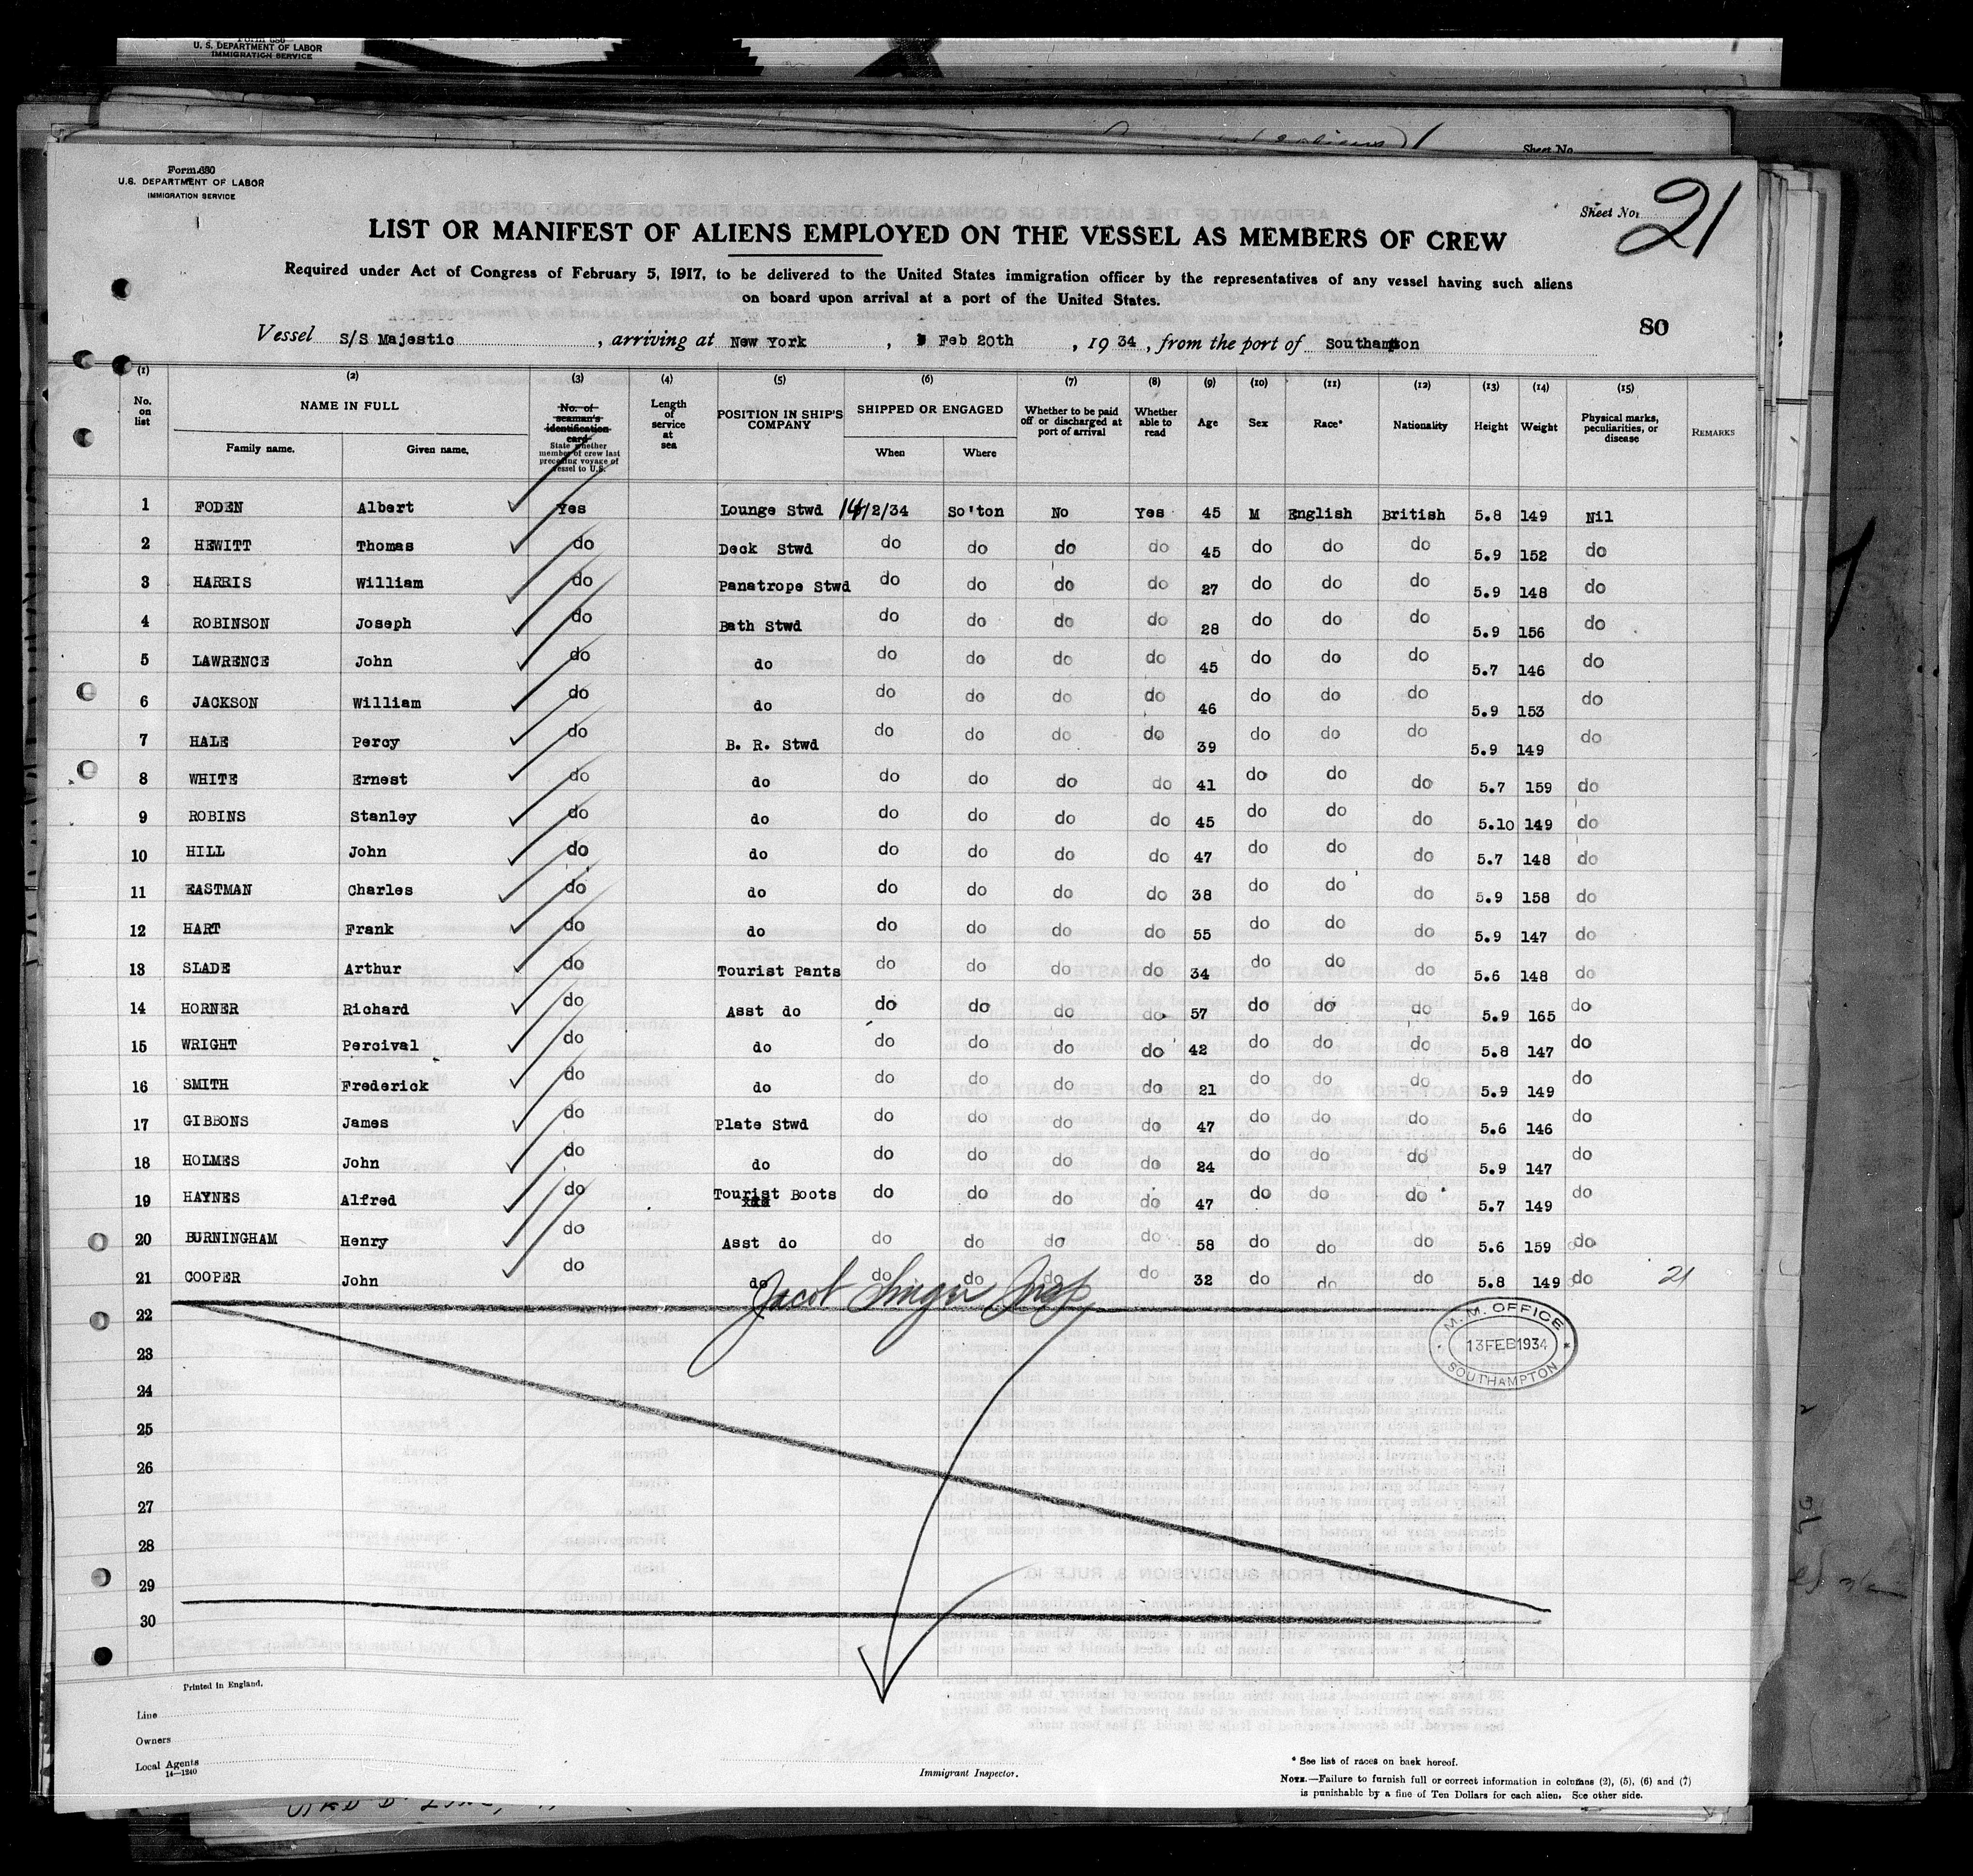 Form 686
U. S. DEPARTMENT OF LABOR
IMMIGRATION SERVICE
Sheet No.
Form 680
U.S. DEPARTMENT OF LABOR
IMMIGRATION SERVICE
Sheet No. 21
LIST OR MANIFEST OF ALIENS EMPLOYED ON THE VESSEL AS MEMBERS OF CREW
Required under Act of Congress of February 5, 1917, to be delivered to the United States immigration officer by the representatives of any vessel having such aliens
on board upon arrival at a port of the United States.
80
Vessel S/S Majestic, arriving at New York, Feb 20th, 1934, from the port of Southampton
(1) (2) (3) (4) (5) (6) (7) (8) (9) (10) (11) (12) (13) (14) (15)
No. on list NAME IN FULL Family name. Given name. No. of seaman's identification card State whether member of crew last preceding voyage of vessel to U.S. Length of service at sea POSITION IN SHIP'S COMPANY SHIPPED OR ENGAGED When Where Whether to be paid off or discharged at port of arrival Whether able to read Age Sex Race* Nationality Height Weight Physical marks, peculiarities, or disease REMARKS
1 FODEN Albert Yes Lounge Stwd 14/2/34 So'ton No Yes 45 M English British 5.8 149 Nil
2 HEWITT Thomas do Deck Stwd do do do do 45 do do do 5.9 152 do
3 HARRIS William do Panatrope Stwd do do do do 27 do do do 5.9 148 do
4 ROBINSON Joseph do Bath Stwd do do do do 28 do do do 5.9 156 do
5 LAWRENCE John do do do do do do 45 do do do 5.7 146 do
6 JACKSON William do do do do do do 46 do do do 5.9 153 do
7 HALE Percy do B. R. Stwd do do do do 39 do do do 5.9 149 do
8 WHITE Ernest do do do do do do 41 do do do 5.7 159 do
9 ROBINS Stanley do do do do do do 45 do do do 5.10 149 do
10 HILL John do do do do do do 47 do do do 5.7 148 do
11 EASTMAN Charles do do do do do do 38 do do do 5.9 158 do
12 HART Frank do do do do do do 55 do do do 5.9 147 do
13 SLADE Arthur do Tourist Pants do do do do 34 do do do 5.6 148 do
14 HORNER Richard do Asst do do do do do 57 do do do 5.9 165 do
15 WRIGHT Percival do do do do do do 42 do do do 5.8 147 do
16 SMITH Frederick do do do do do do 21 do do do 5.9 149 do
17 GIBBONS James do Plate Stwd do do do do 47 do do do 5.6 146 do
18 HOLMES John do do do do do do 24 do do do 5.9 147 do
19 HAYNES Alfred do Tourist Boots do do do do 47 do do do 5.7 149 do
20 BURNINGHAM Henry do Asst do do do do do 58 do do do 5.6 159 do
21 COOPER John do do do do do do 32 do do do 5.8 149 do 21
Jacob Singer Insp
22
23
24
25
26
27
28
29
30
M. M. OFFICE
13 FEB 1934
SOUTHAMPTON
Printed in England.
Line
Owners
Local Agents
14—1240
Immigrant Inspector.
* See list of races on back hereof.
NOTE.—Failure to furnish full or correct information in columns (2), (5), (6) and (7)
is punishable by a fine of Ten Dollars for each alien. See other side.